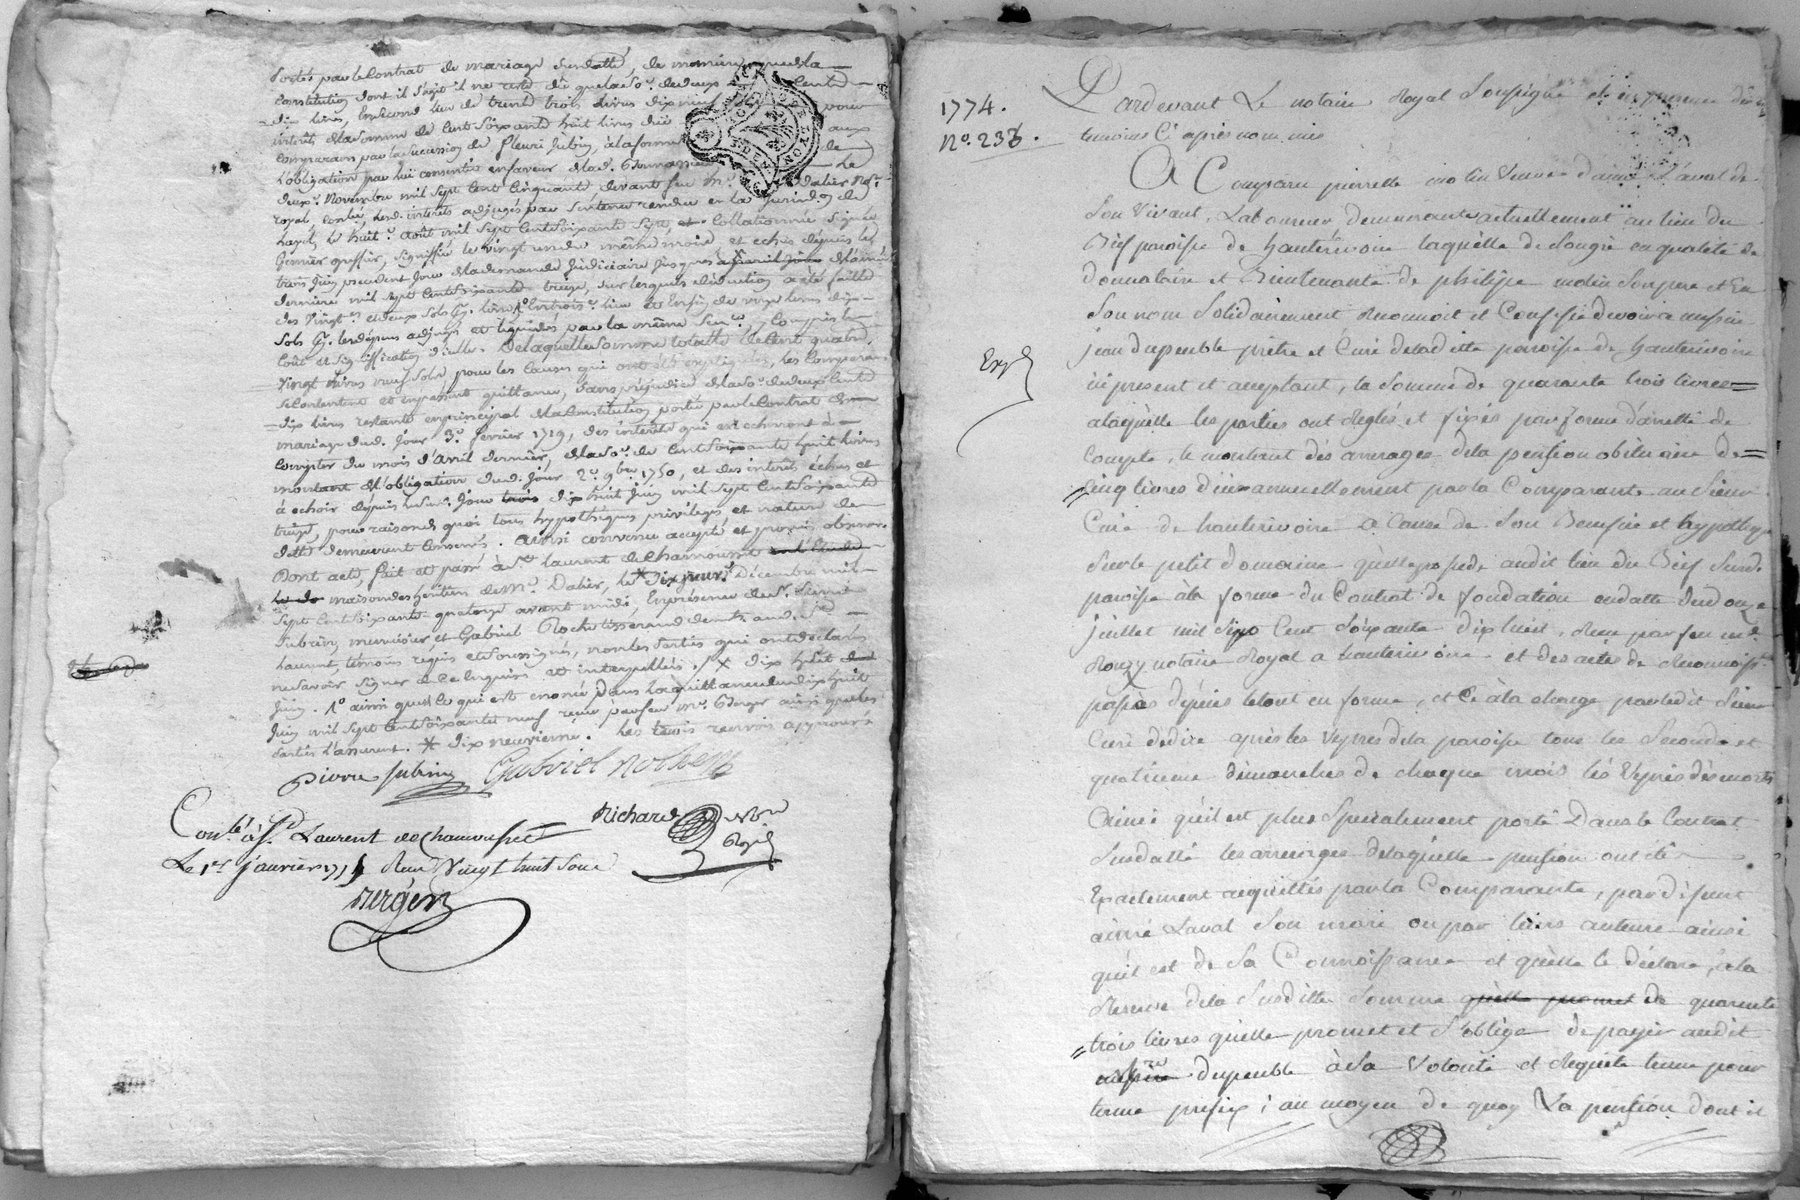 portés par le Contrat de mariage susdatté, de maniere que de la
Constitution dont il s'agit il ne reste dû que la so.e de deux Cents
dix livres, en second lieu de trente trois livres dix neuf pour
interêts de la somme de Cent Soixante huit livres düe aux
Comparans par la succession de fleuri Jubin, a la forme de
L'obligation par lui consentie en faveur de lad. le
deux.e Novembre mil sept Cent Cinquante devant feu M.e Dalier No.re
royal, Contlé, lesd. interets adjugés par Sentence rendue en la Jurisd.on de
le huit.e Août mil sept Cent Soixante Sept, Collationnée signée
greffier, signiffiée le vingt un du même mois et echus depuis le
trois Juin precedent Jour de la demande Judiciaire Jusques
derniere mil sept Cent Soixante treize, sur lesquels deduction a été faitte
des vingt.es et deux sols p. livre 1° En trois.e lieu et Enfin de onze livres dix
Sols p. les dépens adjugés et liquidés par la même Sen.ce y Compris le
Coût et signiffication d'icelle. De laquelle somme totalle de Cent quatre
vingt livres neuf sols pour les Causes qui ont été expliquées, les Comparans
se Contentent et en passent quittance, sans préjudice de la so.e de deux Cents
dix livres restante en principal de la Constitution portée par le Contrat de
mariage dud. Jour 3.e fevrier 1719, des interêts qui en echeront à
Compter du mois d'avril dernier, de la so.e de Cent Soixante huit livres
montant de l'obligation dud. Jour 2.e 9bre 1750, et des interets échus et
à echoir depuis led. Jour trois dix huit Juin mil sept Cent Soixante
treize, pour raison de quoi tous hypothéques privileges et nature de
dette demeurent Conservés. Ainsi convenu accepté et promis observer
Dont acte, fait et passé à St. Laurent de Chamousset
maison des heritiers de M.e Dalier, le * dix Décembre mil
Sept Cent Soixante quatorze avant midi, En présence de S.r Pierre
Jubin, menuisier, et Gabriel Roche tisserand demts. aud. St.
Laurent, témoins requis et Soussignés, non les parties qui ont declaré
ne savoir signer de ce enquises et interpellées. X dix huit
Juin. 1° ainsi que le ce qui est énoncé Dans la quittance du dix huit
Juin mil sept Cent Soixante neuf recue par feu M.e ainsi que les
parties l'assurent. * dix neuvieme. Les trois renvois approuvés
Pierre Jubin Gabriel roche
Richard No.re Royal
Contlé à St. Laurent de Chamousset
Le 1er Janvier 1775 Recu Vingt huit Sous
Berger
1774.
N° 236.
Pardevant Le notaire Royal Soussigné et en presence des
temoins Ci après nommés
A Comparu pierrette molin Veuve d'aimé Laval de
Son Vivant, Laboureur demeurante actuellement au lieu du
Bief paroisse de hauterivoire laquelle de Son gré en qualité de
donnataire et Bientenante de philippe molin Son pere et En
Son nom Solidairement Reconnoit et Confesse devoir a messire
jean dupeuble prêtre et Curé de la ditte paroisse de hauterivoire
ici present et acceptant, la Somme de quarante trois livres
Exp.
a laquelle les parties ont Reglés et fixés par forme d'arretté de
Compte, le montant des arrerages de la pension obituaire de
cinq livres düe annuellement par la Comparante au Sieur
Curé de hauterivoire a Cause de Son Benefice et hypothequée
Sur le petit domaine qu'elle possede audit lieu du Bief Susd.
paroisse à la forme du Contrat de fondation en datte du douze
juillet mil Sept Cent Soixante dix huit, Recu par feu m.e
Rouzy notaire Royal a hauterivoire et des actes de Reconnoiss.ce
passés depuis le tout en forme, et Ce à la charge par ledit Sieur
Curé de dire après les Vêpres de la paroisse tous les Seconds et
quatrieme dimanches de chaque mois les Vêpres des morts
Ainsi qu'il est plus Specialement porté Dans le Contrat
Susdatté les arrerages de laquelle pension ont été
Exactement acquittés par la Comparante, par défunt
aimé Laval Son mari ou par leurs auteurs ainsi
qu'il est de Sa Connoissance et qu'elle le déclare, à la
Reserve de la Susditte Somme qu'elle promet de quarente
trois livres qu'elle promet et S'oblige de payer audit
Sr. dupeuble à Sa Volonté et Requete tenue pour
terme prefix ; au moyen de quoy La pension dont il